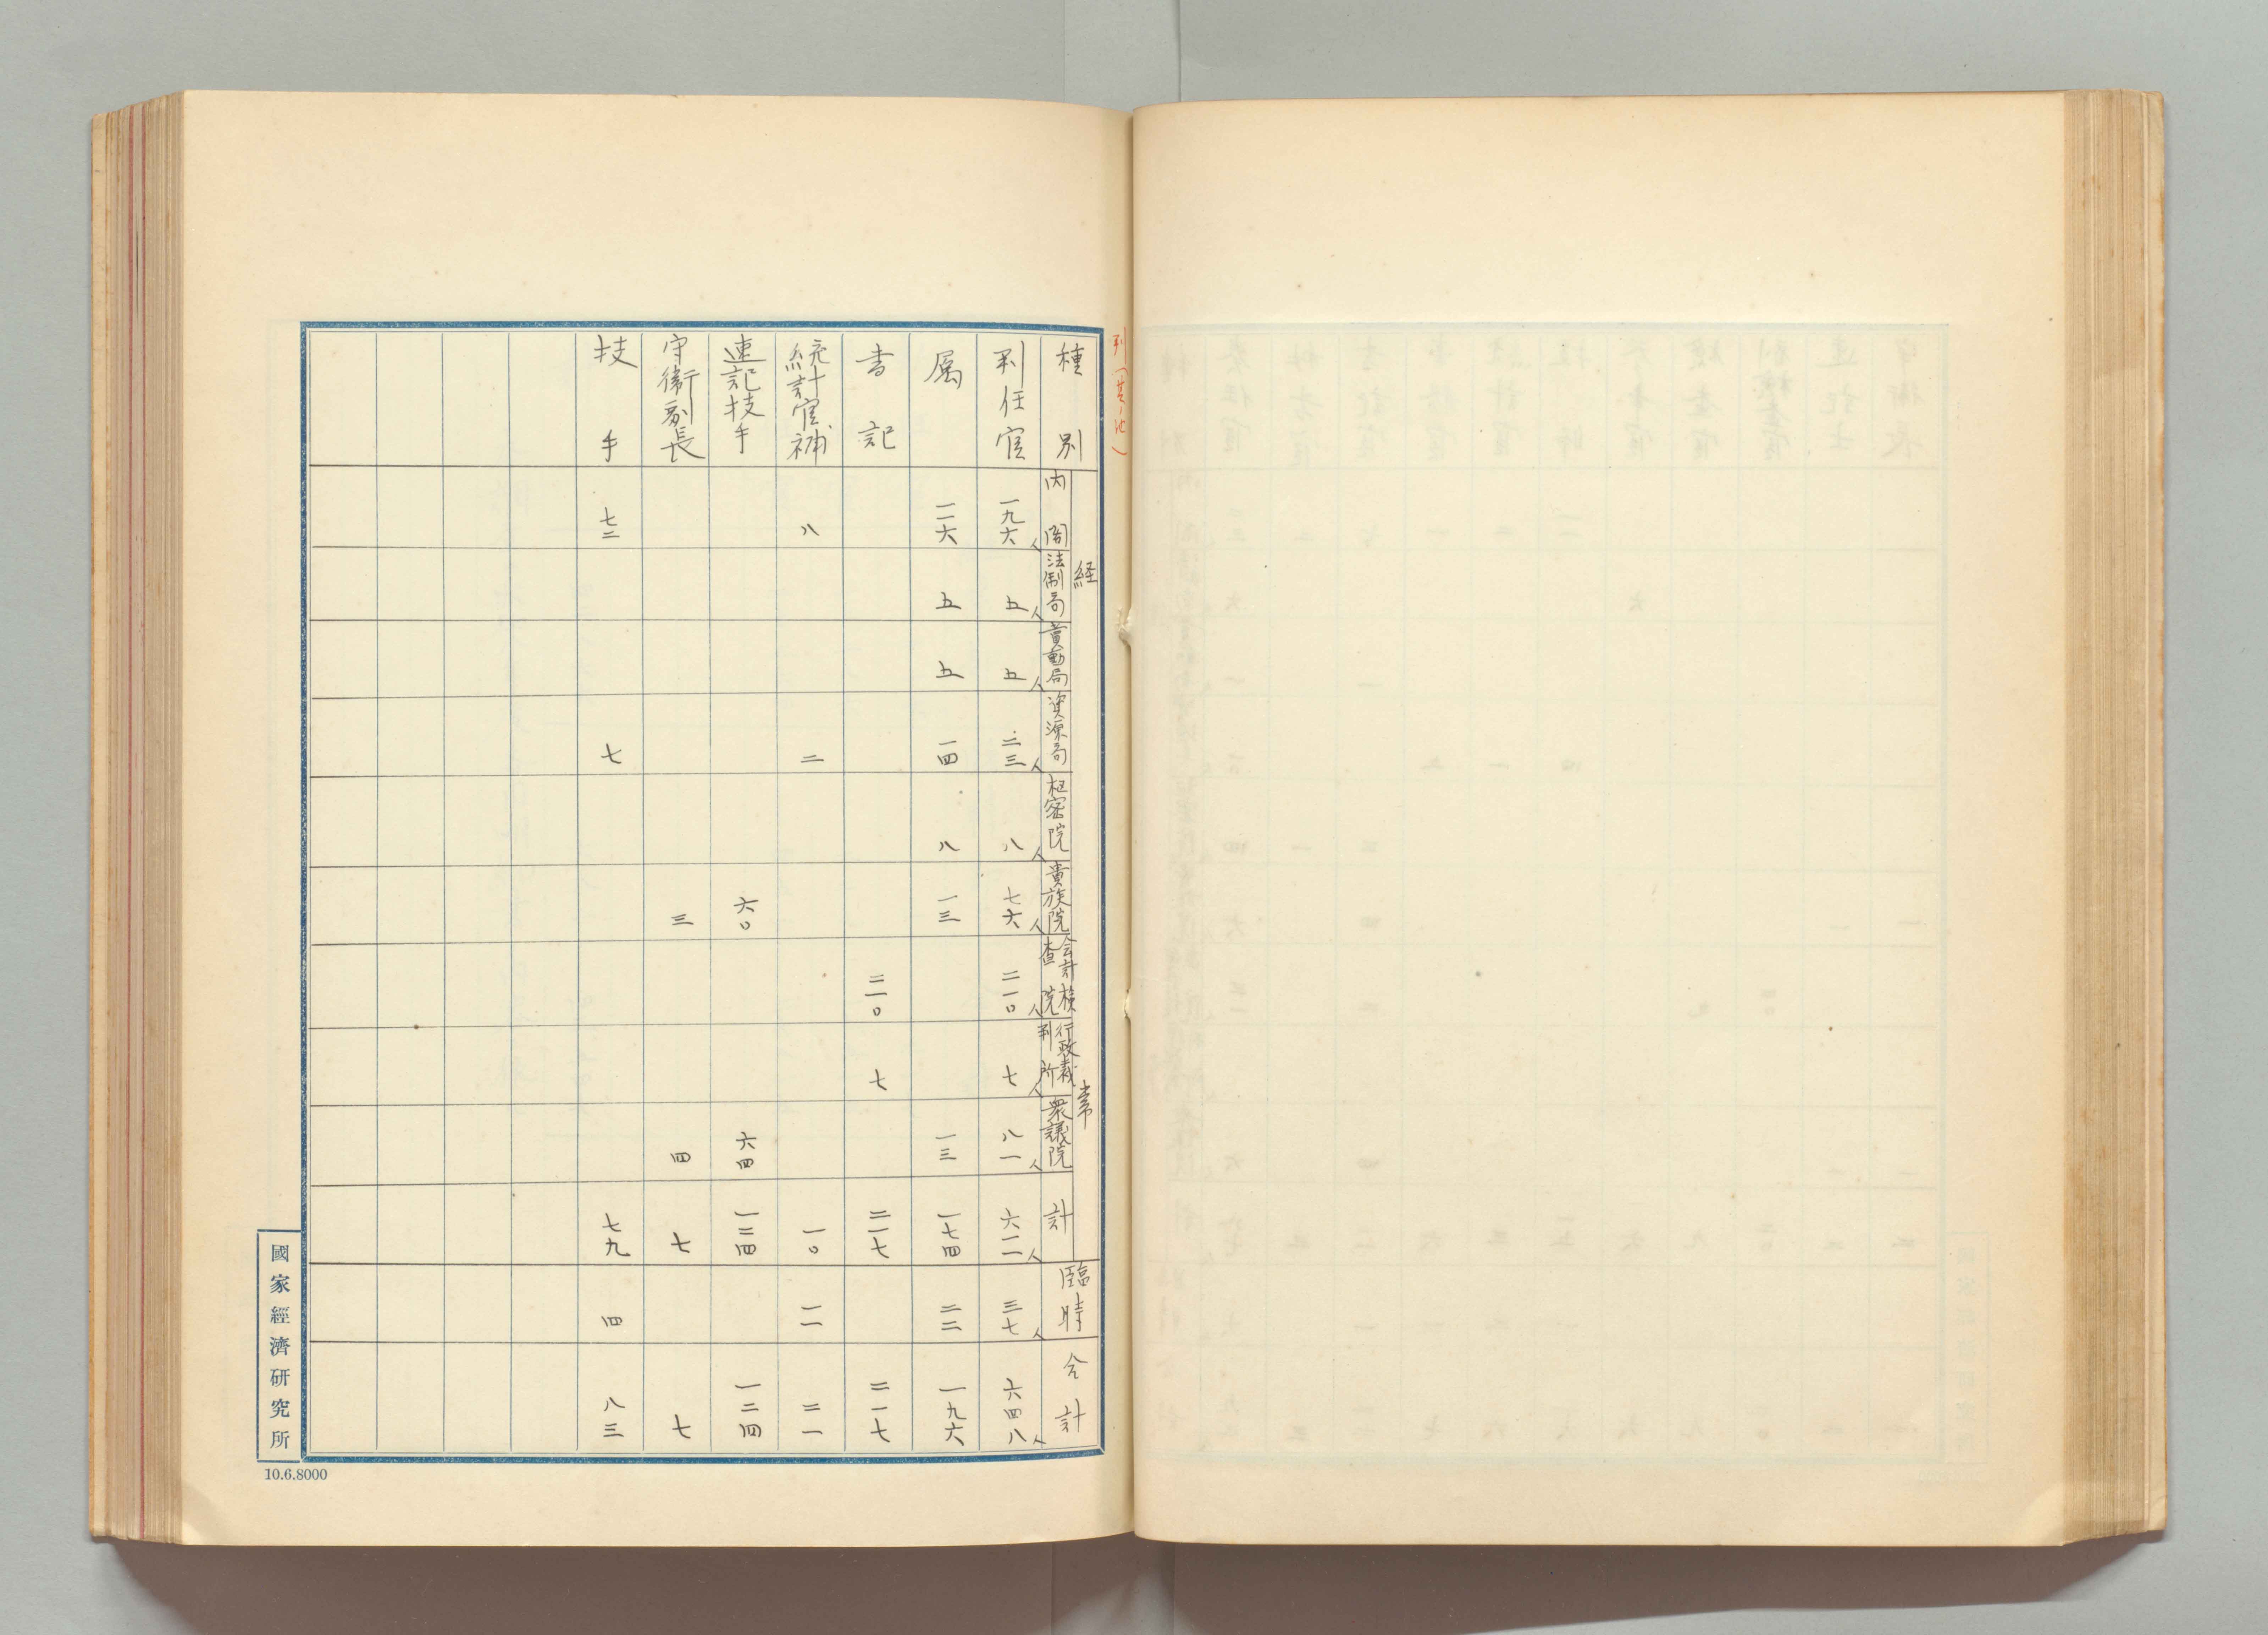 判(其ノ他)
種別 経常 内閣 法制局 賞勲局 資源局 枢密院 貴族院 会計検査院 行政裁判所 衆議院 計 臨時 合計
判任官 一九六人 五人 五人 二三人 八人 七六人 二一〇人 七人 八一人 六一一人 三七人 六四八人
属 一一六 五 五 一四 八 一三 一三 一七四 二二 一九六
書記 二一〇 七 二一七 二一七
統計官補 八 二 一〇 一一 二一
速記技手 六〇 六四 一二四 一二四
守衛副長 三 四 七 七
技手 七二 七 七九 四 八三
國家經濟研究所
10.6.8000